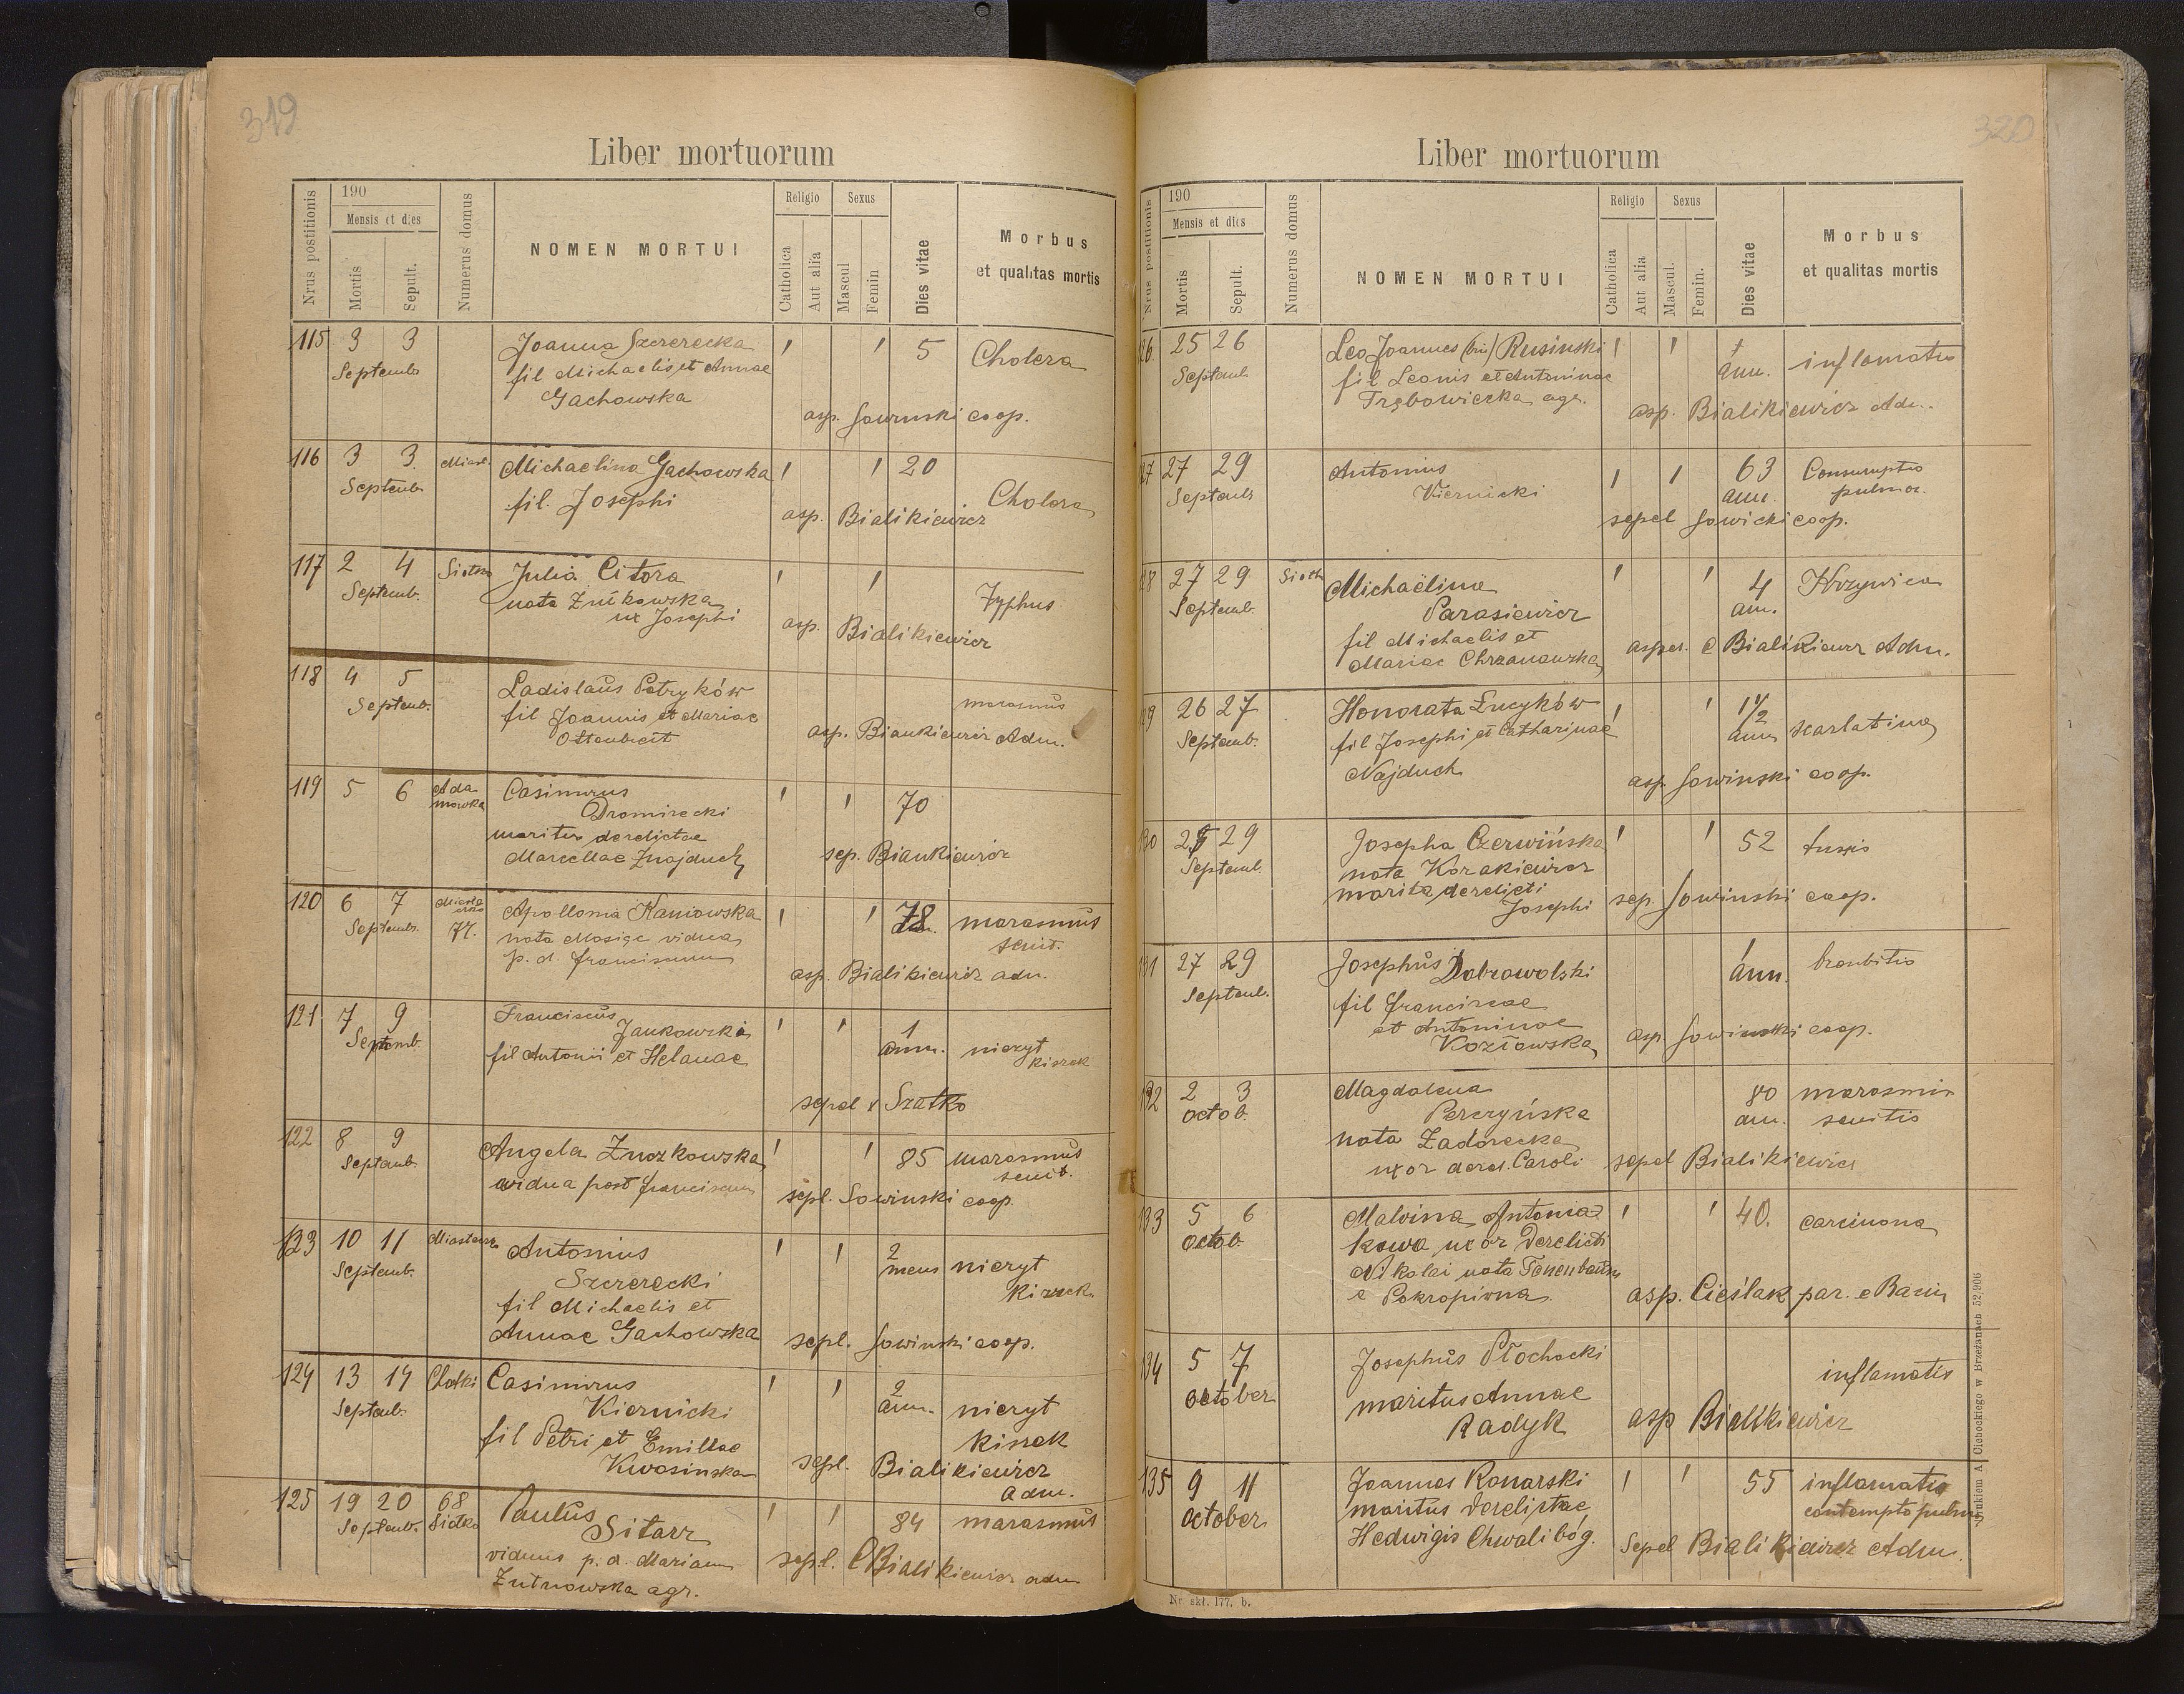 319
Liber mortuorum
Nrus postitionis
190
Mensis et dies
Mortis
Sepult.
Numerus domus
NOMEN MORTUI
Religio
Catholica
Aut alia
Sexus
Mascul
Femin
Dies vitae
Morbus
et qualitas mortis
115 3 3 Joanna Szczerecka ' ' 5 Cholera
Septemb fil Michaelis et Annae
Gachowska
asp. Sowinski coop.
116 3 3. Miast. Michaelina Gachowska ' ' 20
Septemb fil. Josephi Cholera
asp. Bialikiewicz
117 2 4 Julia Citora ' '
Septemb. nata Znikowska Typhus
ux Josephi
asp. Bialikiewicz
118 4 5 Ladislaus Petryków marasmus
Septemb. fil Joannis et Mariae
asp. Biankiewicz Adm.
119 5 6 Ada Casimirus ' ' 70
mowka Dromirecki
maritus derelictae
Marcellae Znajduch
sep. Biankiewicz
120 6 7 Apollonia Kaniowska ' ' 78 marasmus
Septemb. nata vidua senit.
p. d. franciscum
asp. Bialikiewicz adm.
121 7 9 Franciscus ' ' 1
Septemb. Jankowski ann. nieżyt
fil Antonii et Helenae kiszek
sepel Szatko
122 8 9 Angela Znozkowska ' ' 85 marasmus
Septemb. vidua post franciscum senit.
sepl. Sowinski coop.
123 10 11 Antonius ' ' 2
Septemb. Szczerecki mens nieżyt
fil Michaelis et kiszek
Annae Gachowska
sepl. Sowinski coop.
124 13 14 Chatki Casimirus ' ' 2
Septemb. Kiernicki ann. nieżyt
fil Petri et Emiliae kiszek
Kwosinska
sepl. Bialikiewicz
Adm.
125 19 20 68 Paulus ' ' 84 marasmus
Septemb. Siolko Sitarz
viduus p. d. Mariam
Zutnowska agr.
sepl. C Bialikiewicz adm
320
Liber mortuorum
Nrus postitionis
190
Mensis et dies
Mortis
Sepult.
Numerus domus
NOMEN MORTUI
Religio
Catholica
Aut alia
Sexus
Mascul.
Femin.
Dies vitae
Morbus
et qualitas mortis
26 25 26 Leo Joannes (bin) Rusinski ' '
Septemb fil Leonis et Antoninae ann. inflamatio
Trębowiecka agr.
asp. Bialikiewicz Adm.
27 27 29 Antonius ' ' 63 Consumptio
Septemb Kiernicki ann. pulmo.
sepel Sowicki coop.
28 27 29 Michaëlina ' ' 4 Krzywica
Septemb. Parasiewicz ann.
fil Michaelis et
Mariae Chrzanowska
asper. C Bialikiewicz Adm.
29 26 27 Honorata Lucyków ' ' 1 1/2 scarlatina
Septemb. fil Josephi et Catharinae ann
Najduch
asp. Sowinski coop.
30 29 Josepha Czerwińska ' ' 52 tussis
Septemb. nata Korakiewicz
marita derelicti
Josephi
sep. Sowinski coop.
31 27 29 Josephus Dobrowolski 1 ann.
Septemb. fil Franciscae
et Antoninae
Kozłowska
asp. Sowinski coop.
132 2 3 Magdalena 80 marasmus
Octob. Perczyńska ann. senitis
nata Zadorecka
uxor derel. Caroli
sepel Bialikiewicz
133 5 6 Malvina Antonia ' ' 40. carcinoma
Octob. kowa uxor Derelicti
Nikolai nata Tenenbaum
e Pokropiwna.
asp. Cieślak par. e Baniu
134 5 7 Josephus Płochocki inflamatis
October maritus Annae
Radyk
asp Bialikiewicz
135 9 11 Joannes Konarski ' ' 55 inflamatio
October maritus Derelictae contempto pulmo
Hedwigis Chwalibóg.
Sepel Bialikiewicz Adm.
Drukiem A Ciehockiego w Brzeżanach 52,906
Nr. skł. 177. b.